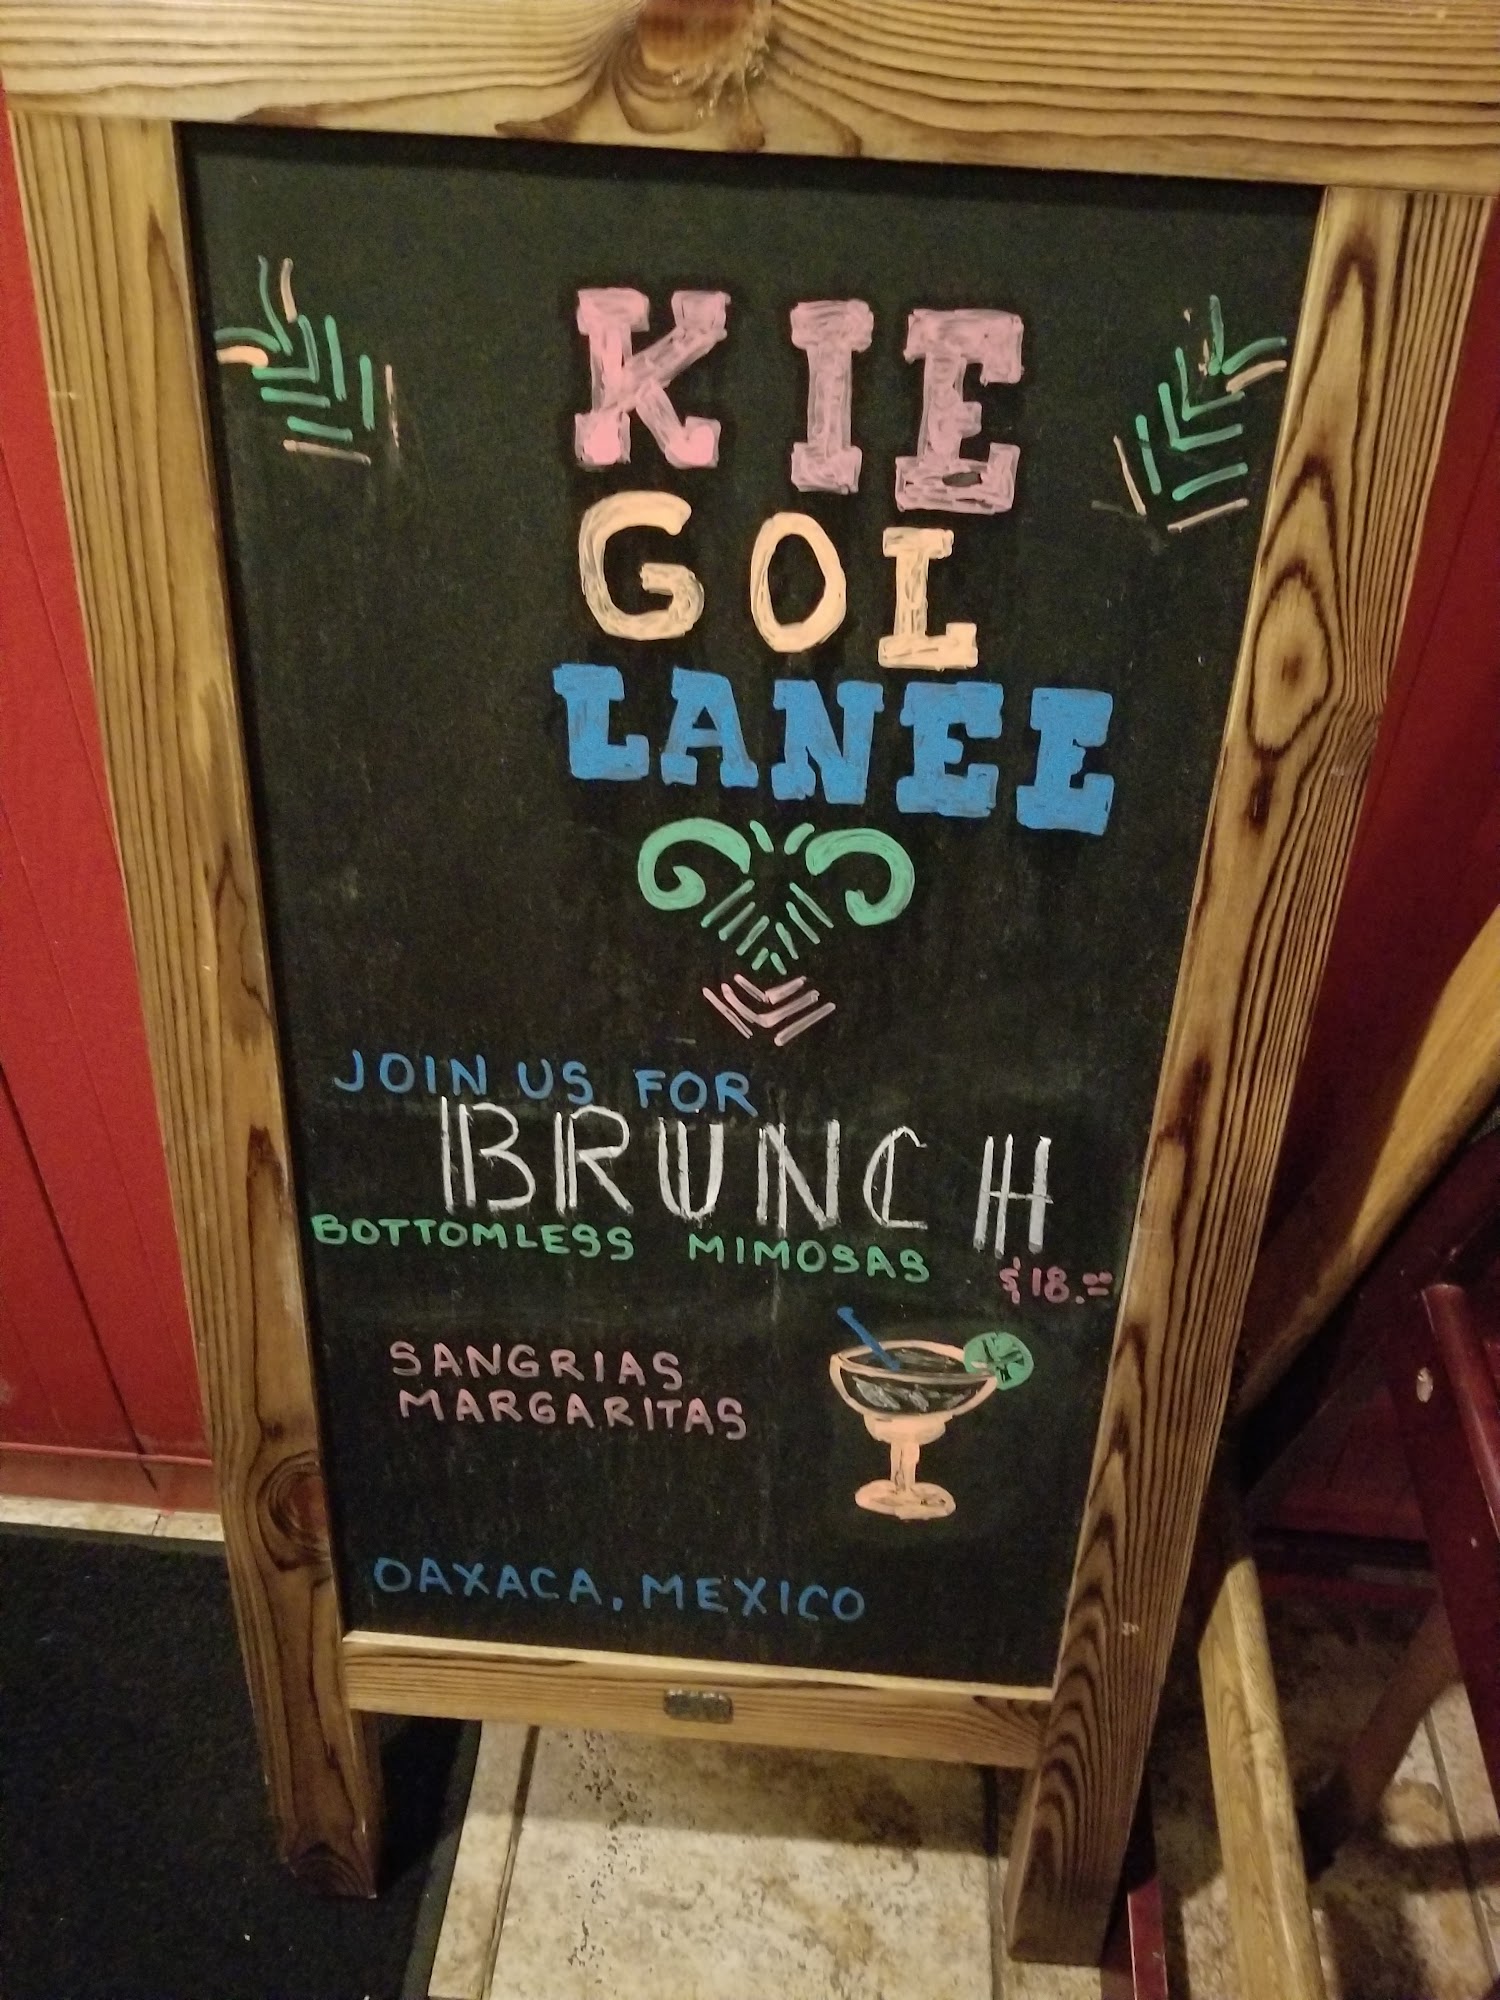 KIE
GOL
LANEE
JOIN US FOR
BRUNCH
BOTTOMLESS MIMOSAS
$18.00
SANGRIAS
MARGARITAS
OAXACA, MEXICO